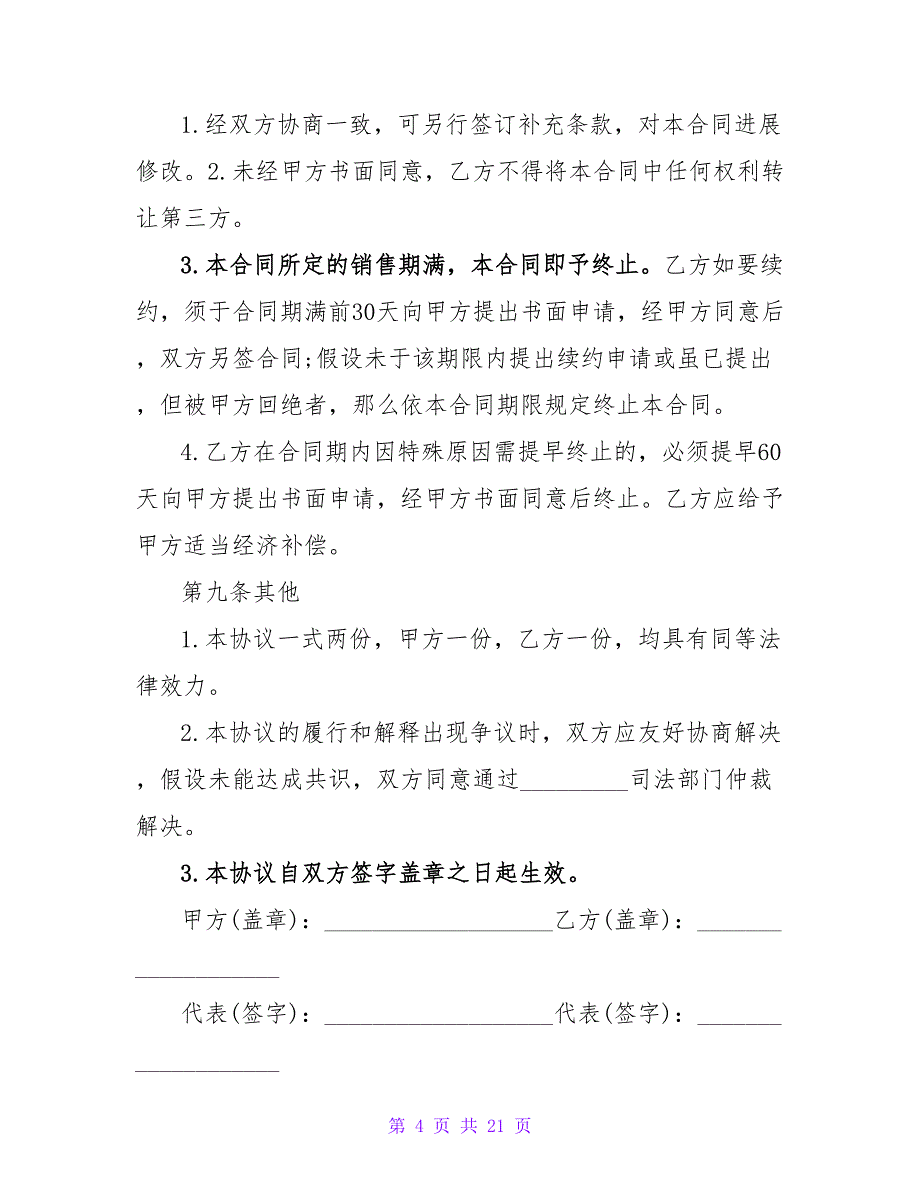 1.经双方协商一致，可另行签订补充条款，对本合同进展
修改。2.未经甲方书面同意，乙方不得将本合同中任何权利转
让第三方。
3.本合同所定的销售期满，本合同即予终止。乙方如要续
约，须于合同期满前30天向甲方提出书面申请，经甲方同意后
，双方另签合同;假设未于该期限内提出续约申请或虽已提出
，但被甲方回绝者，那么依本合同期限规定终止本合同。
4.乙方在合同期内因特殊原因需提早终止的，必须提早60
天向甲方提出书面申请，经甲方书面同意后终止。乙方应给予
甲方适当经济补偿。
第九条其他
1.本协议一式两份，甲方一份，乙方一份，均具有同等法
律效力。
2.本协议的履行和解释出现争议时，双方应友好协商解决
，假设未能达成共识，双方同意通过_________司法部门仲裁
解决。
3.本协议自双方签字盖章之日起生效。
甲方(盖章)：___________________乙方(盖章)：_______
____________
代表(签字)：___________________代表(签字)：_______
____________
第 4 页 共 21 页